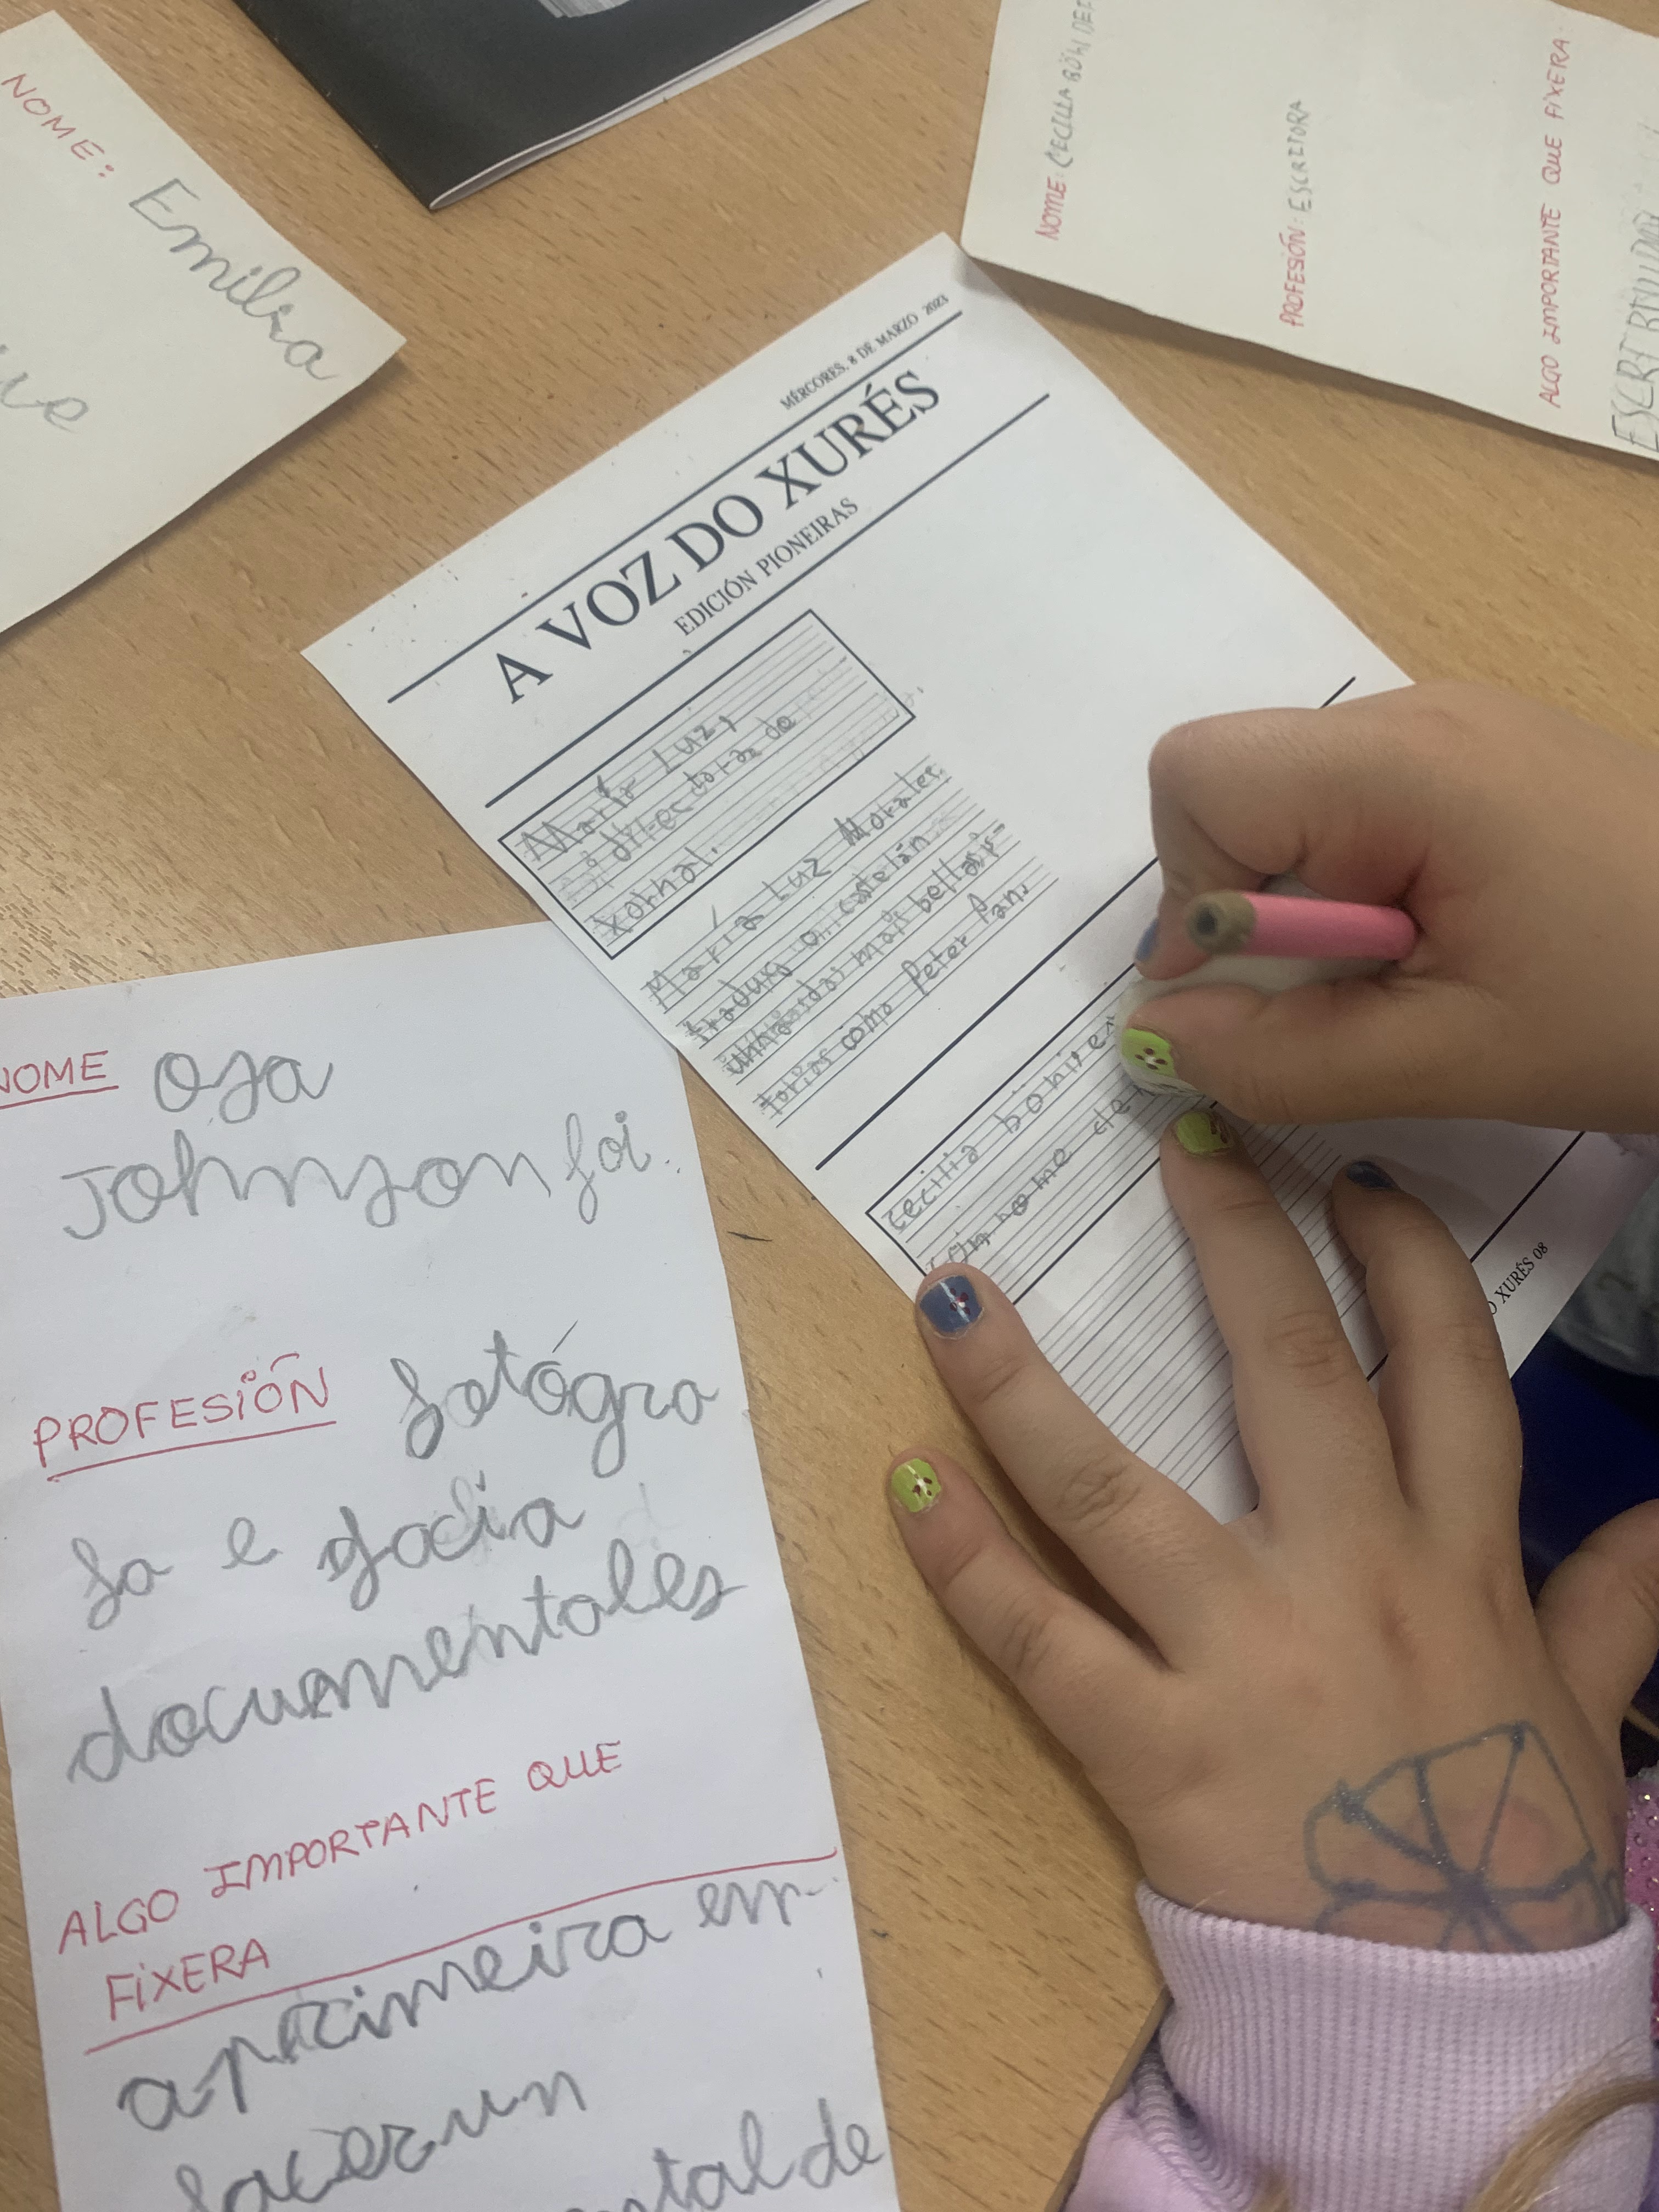 NOME: Emilia
NOME: CECILLA BÖHL DE
PROFESIÓN: ESCRITORA
ALGO IMPORTANTE QUE FIXERA:
MÉRCORES, 8 DE MARZO 2023
A VOZ DO XURÉS
EDICIÓN PIONEIRAS
María Luz,
directora de
xornal.
María Luz Morales
traduxo o castelán
unha das máis bellas his-
torias como Peter Pan.
cecilia böhl
nome de
O XURÉS 08
NOME Osa
Johnson foi..
PROFESIÓN fotógra
fa e facia
documentales
ALGO IMPORTANTE QUE
FIXERA
a primeira en
facer un
tal de